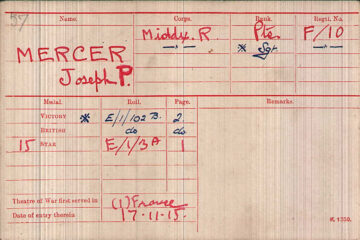 Name. Corps. Rank. Regtl. No.
MERCER Middx. R Pte. F/10
Joseph P. -"- * Sgt. -"-
Medal. Roll. Page. Remarks.
VICTORY * E/1/102 B. 2.
BRITISH do do
15 STAR E/1/3A 1
Theatre of War first served in (1) France
Date of entry therein 17-11-15.
K. 1380.